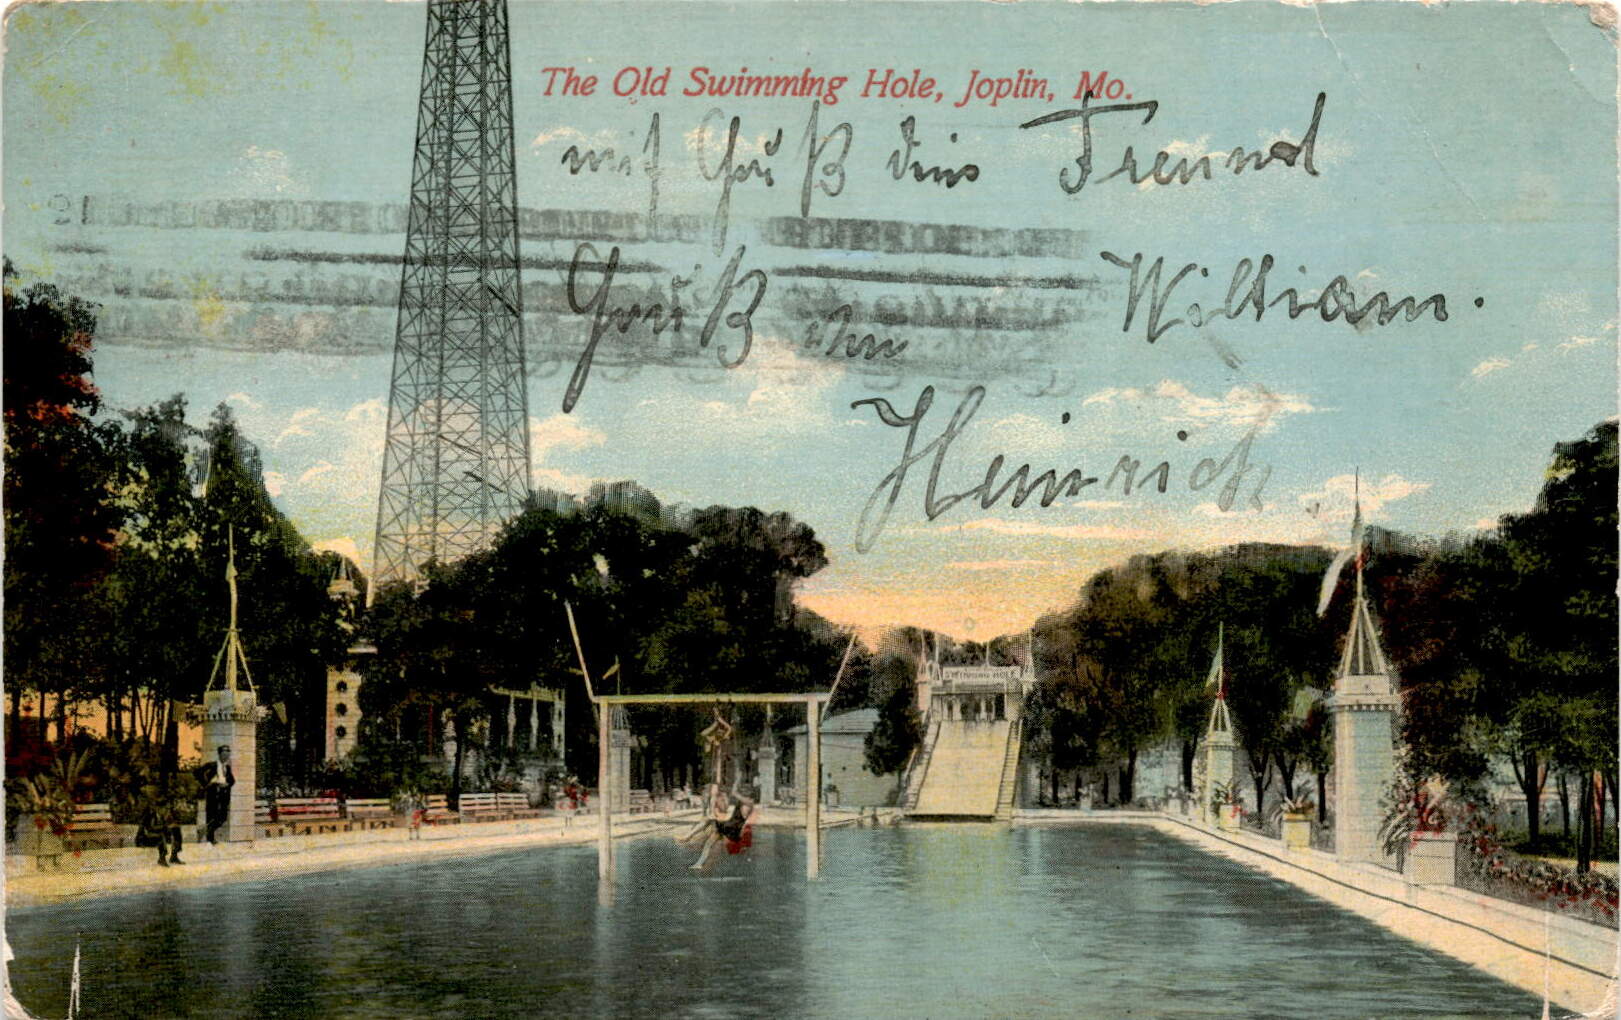 The Old Swimming Hole, Joplin, Mo.
mit Gruß dein Freund
Gruß an William.
Heinrich
SWIMMING HOLE